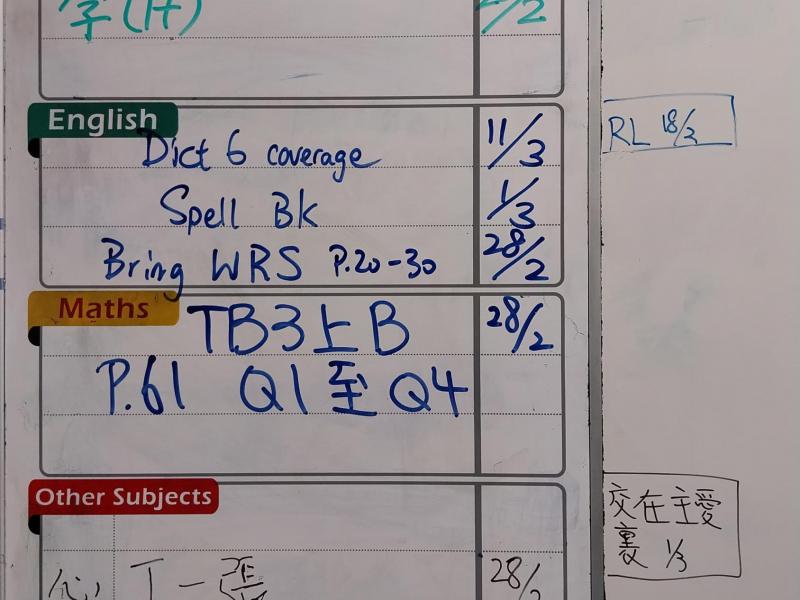 字(什) 2/2
English
Dict 6 coverage 11/3
Spell Bk 1/3
Bring WRS P.20-30 28/2
Maths
TB3上B 28/2
P.61 Q1至Q4
Other Subjects
丁一 28/2
RL 18/3
交在主愛
裏 1/3